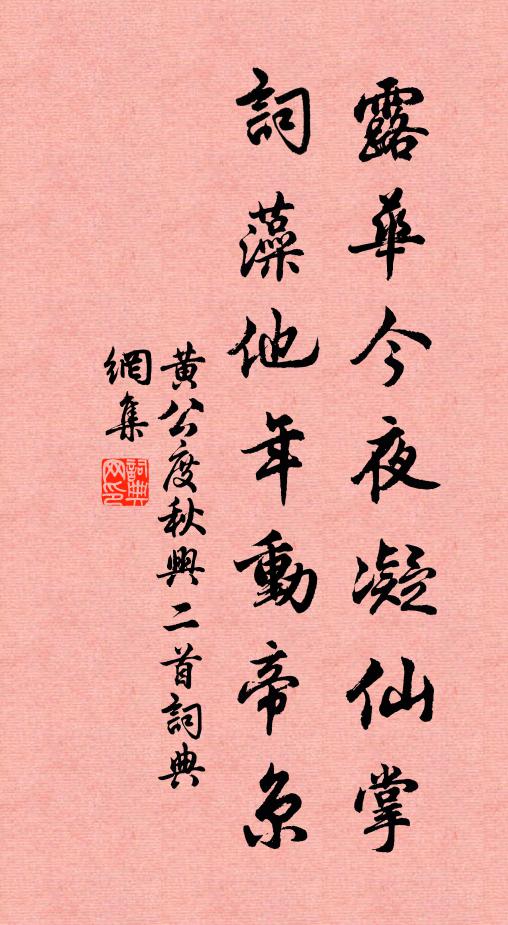 露華今夜凝仙掌
詞藻他年動帝京
黄公度秋興二首詞典
網集
詞典
网印